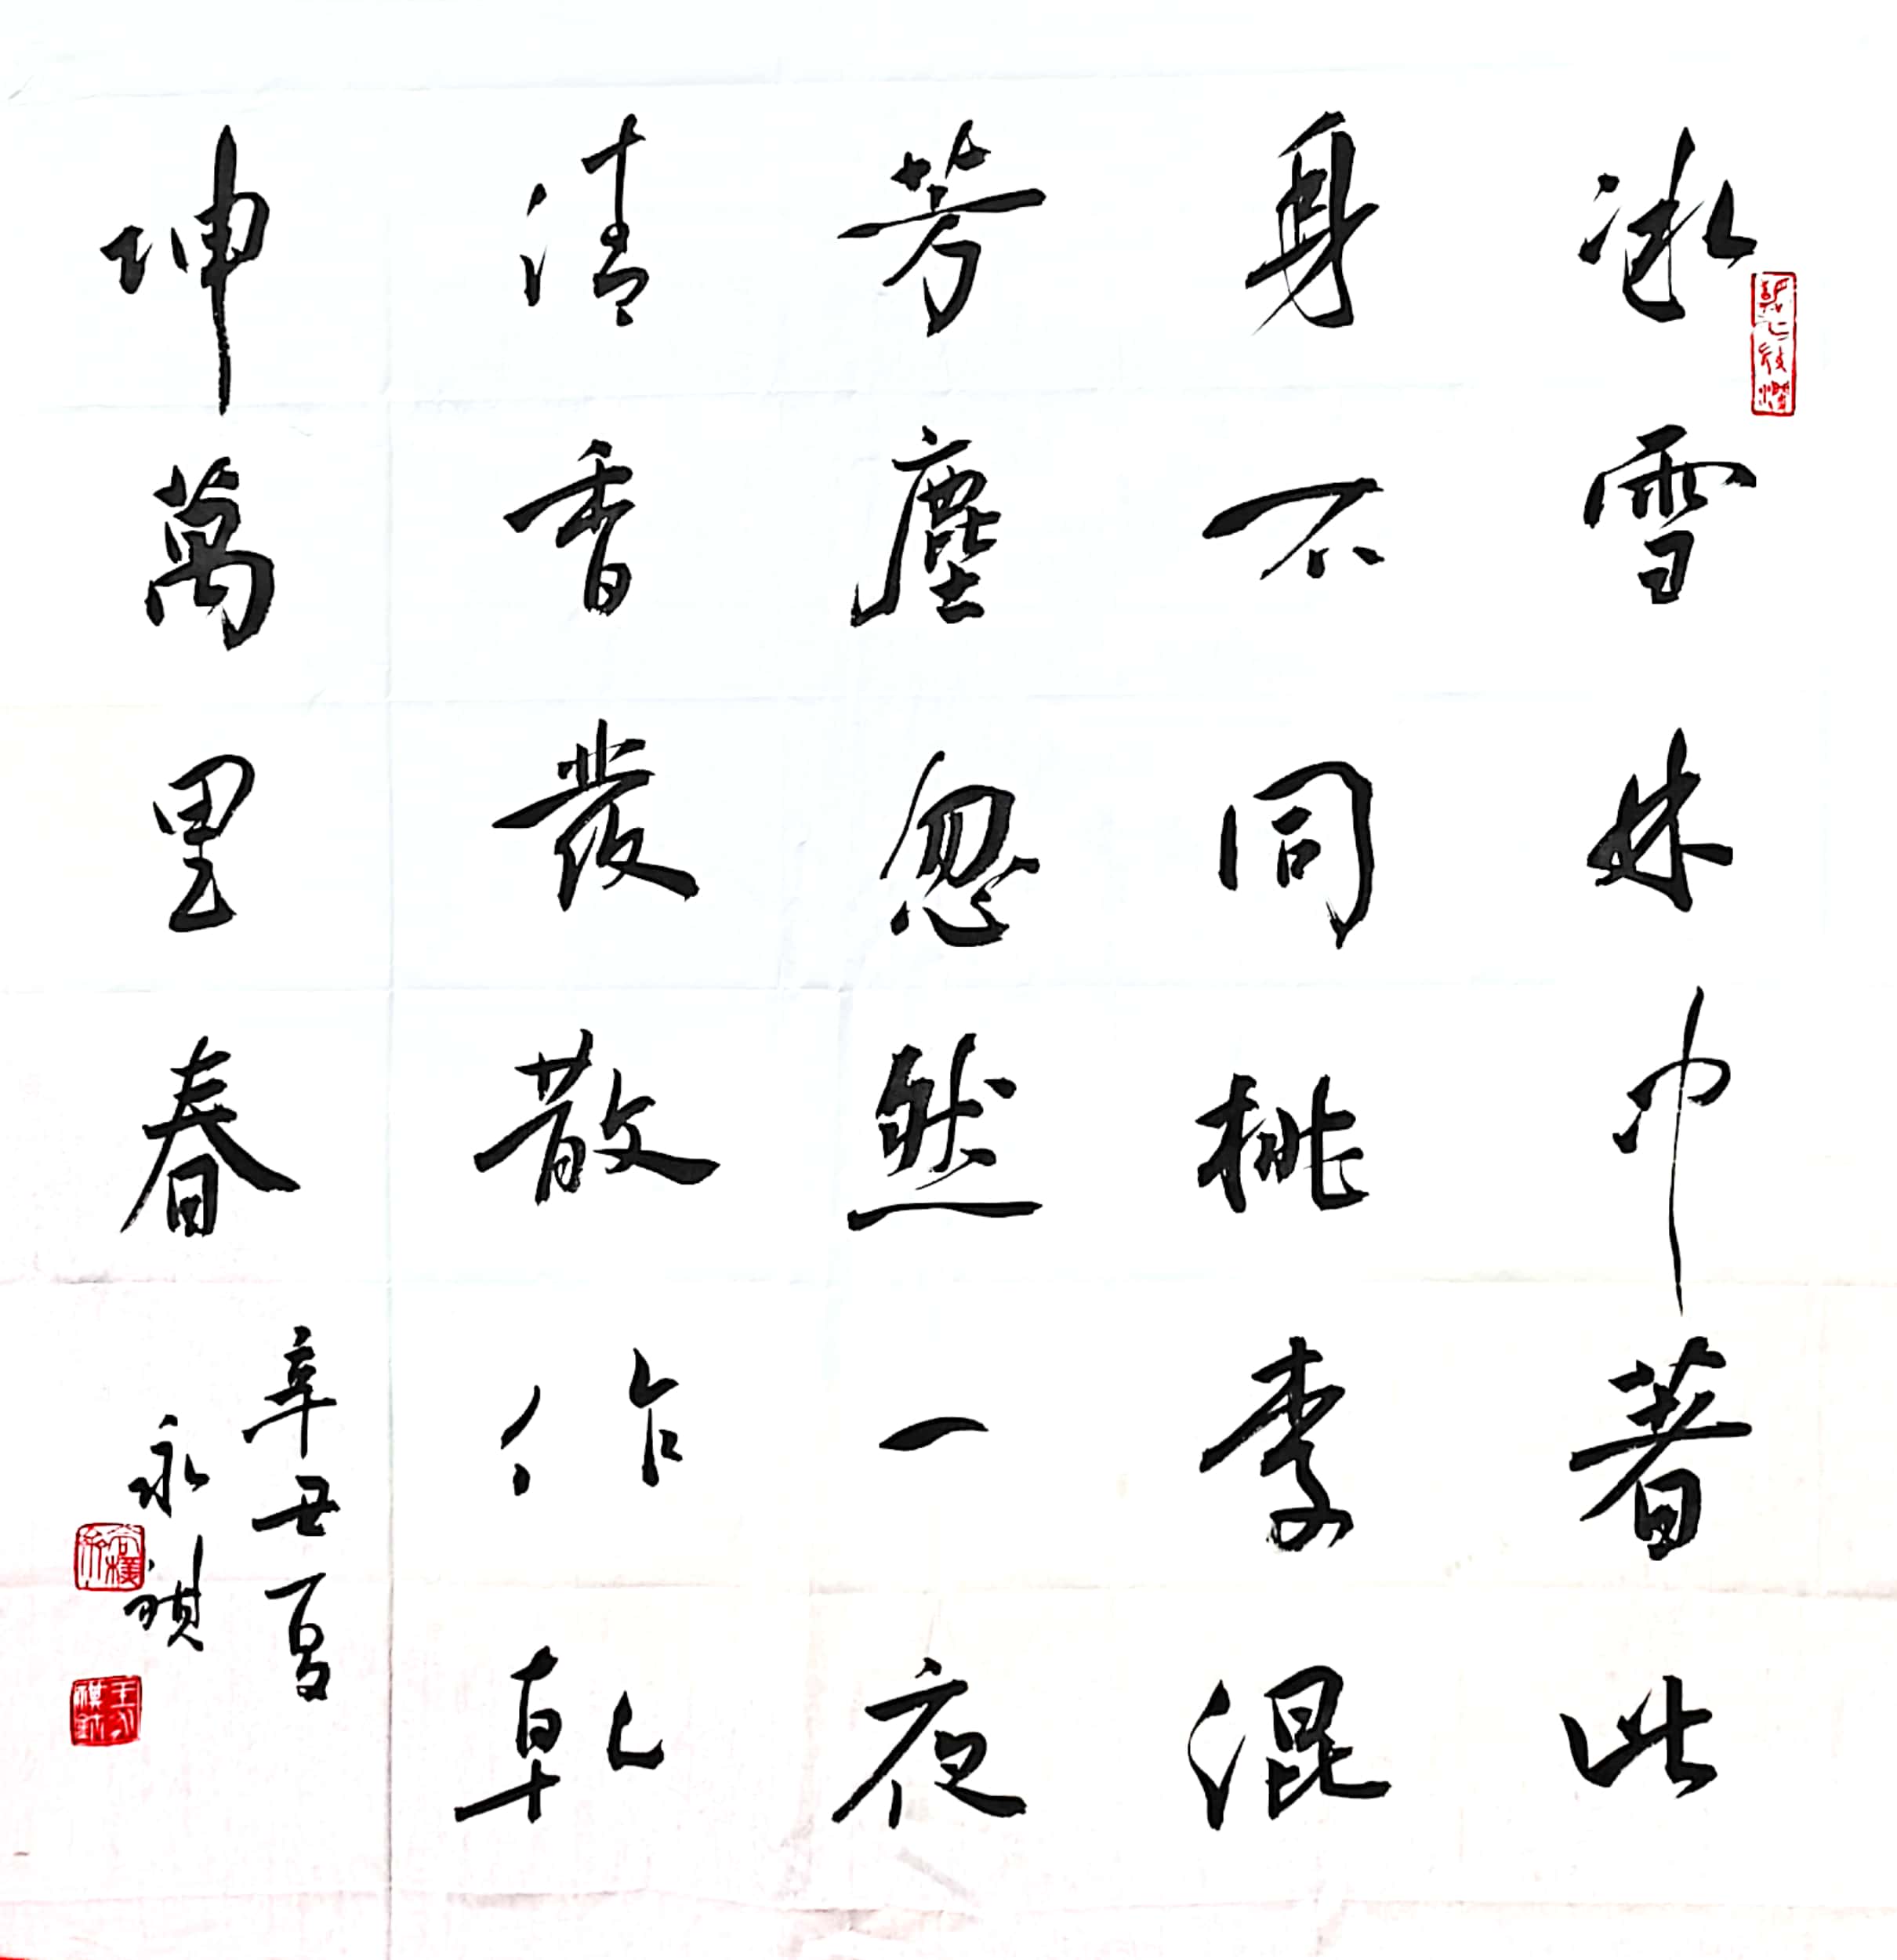 冰雪林中著此
身不同桃李混
芳塵忽然一夜
清香發散作乾
坤萬里春
辛丑夏
永祺